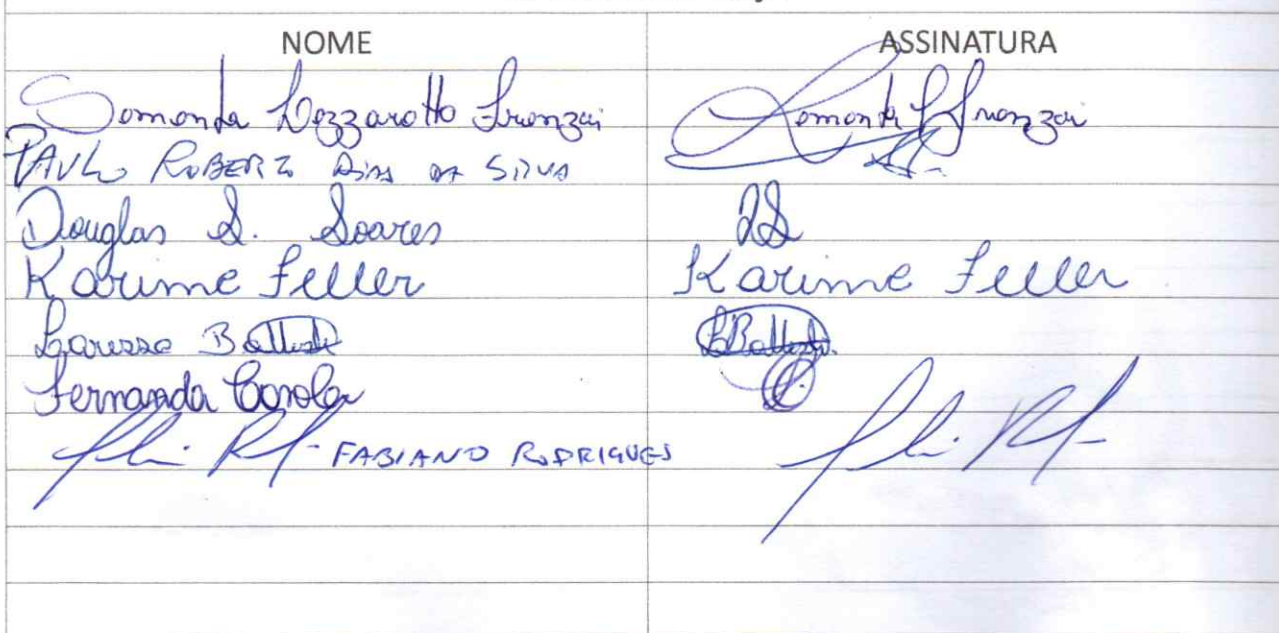 NOME ASSINATURA
Samanda Lazzarotto Franzai Samanda L Franzai
PAULO ROBERTO DIAS DA SILVA
Douglas S. Soares DS
Karime Feller Karime Feller
Laressa Battisti LBattisti
Fernanda Corola
FABIANO RODRIGUES